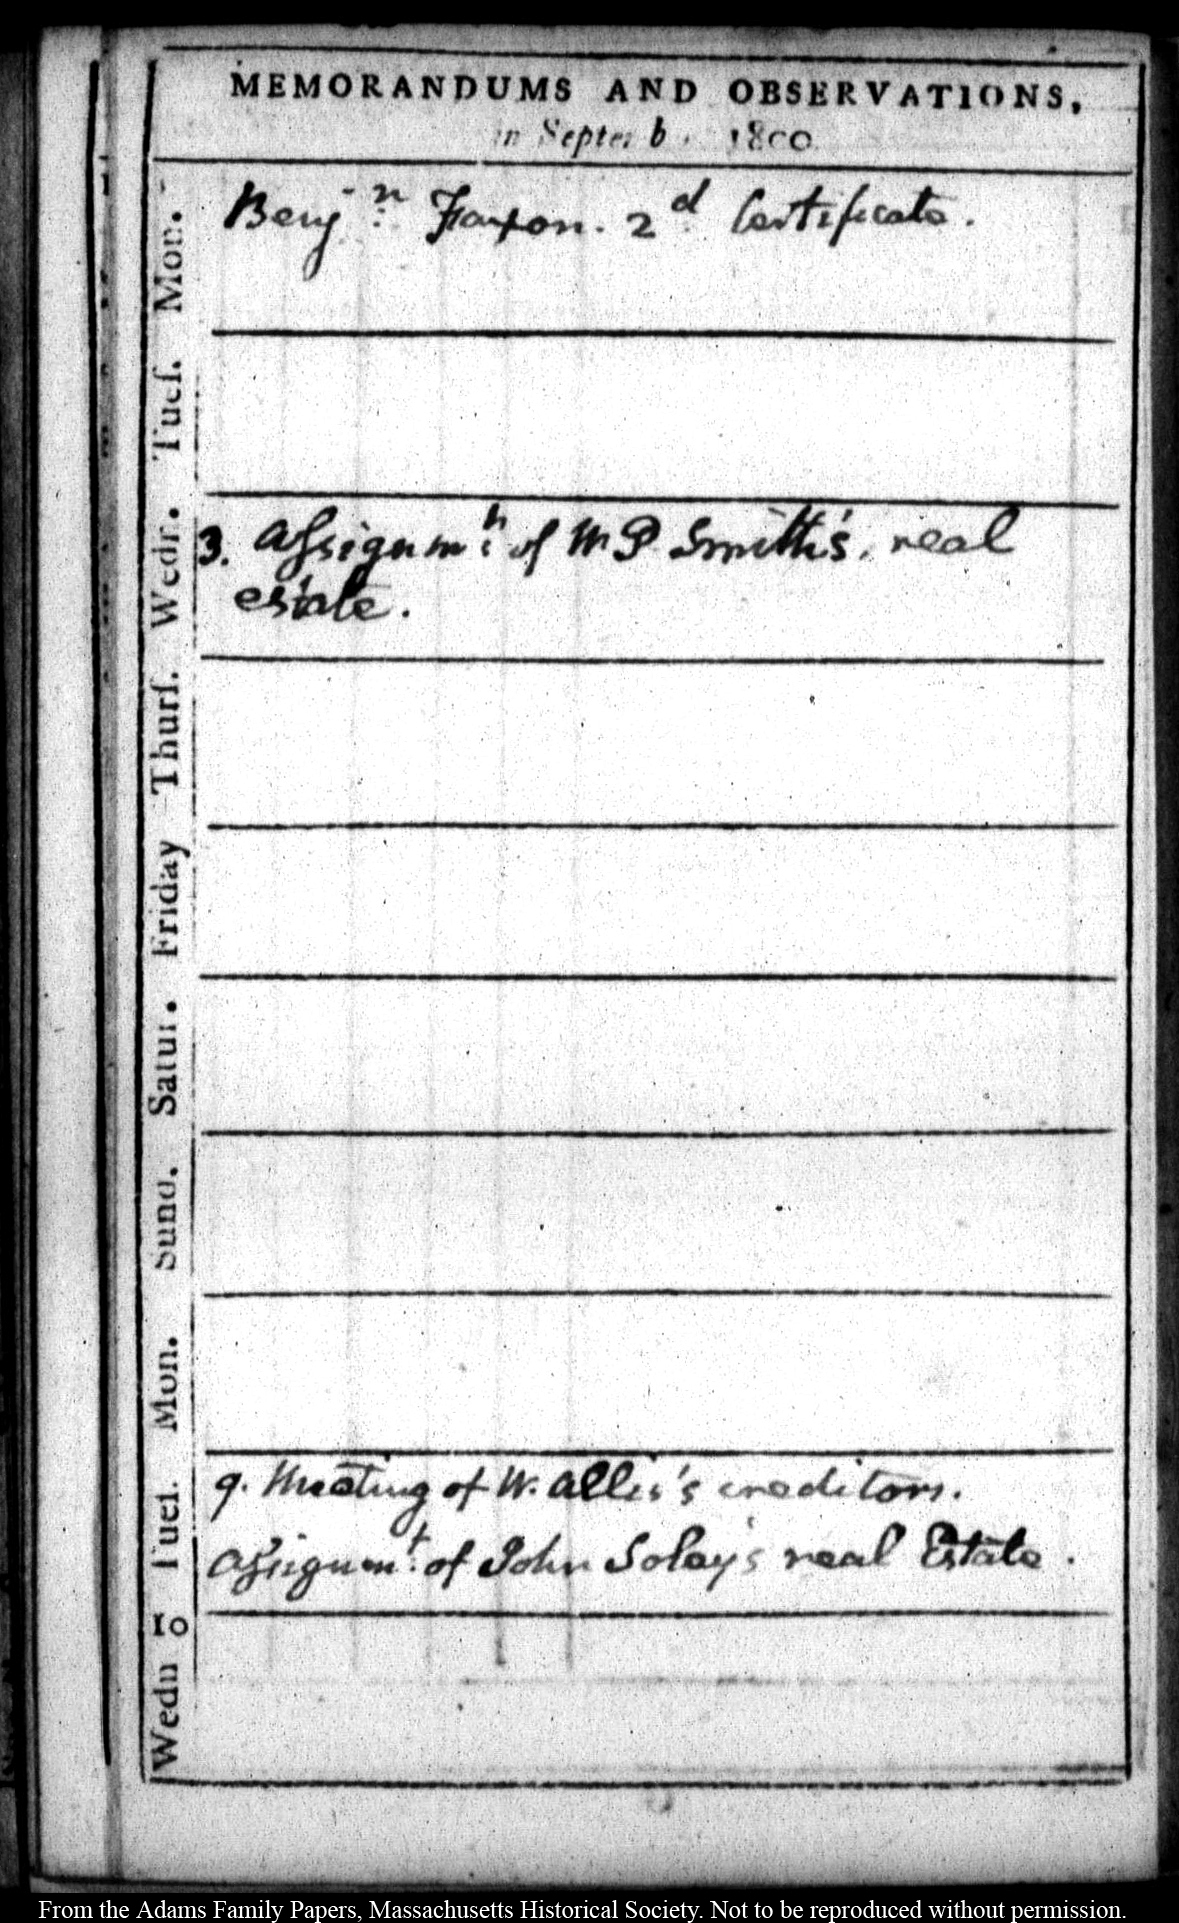 MEMORANDUMS AND OBSERVATIONS,
in Septemb. 1800
Mon. Benjn. Faxon. 2d. Certificate.
Tueſ.
Wedn. 3. Aſsignmt. of W P Smith's real
estate.
Thurſ.
Friday
Satur.
Sund.
Mon.
Tueſ. 9. Meeting of W. Allis's creditors.
Aſsignmt. of John Soley's real Estate.
Wedn 10
From the Adams Family Papers, Massachusetts Historical Society. Not to be reproduced without permission.